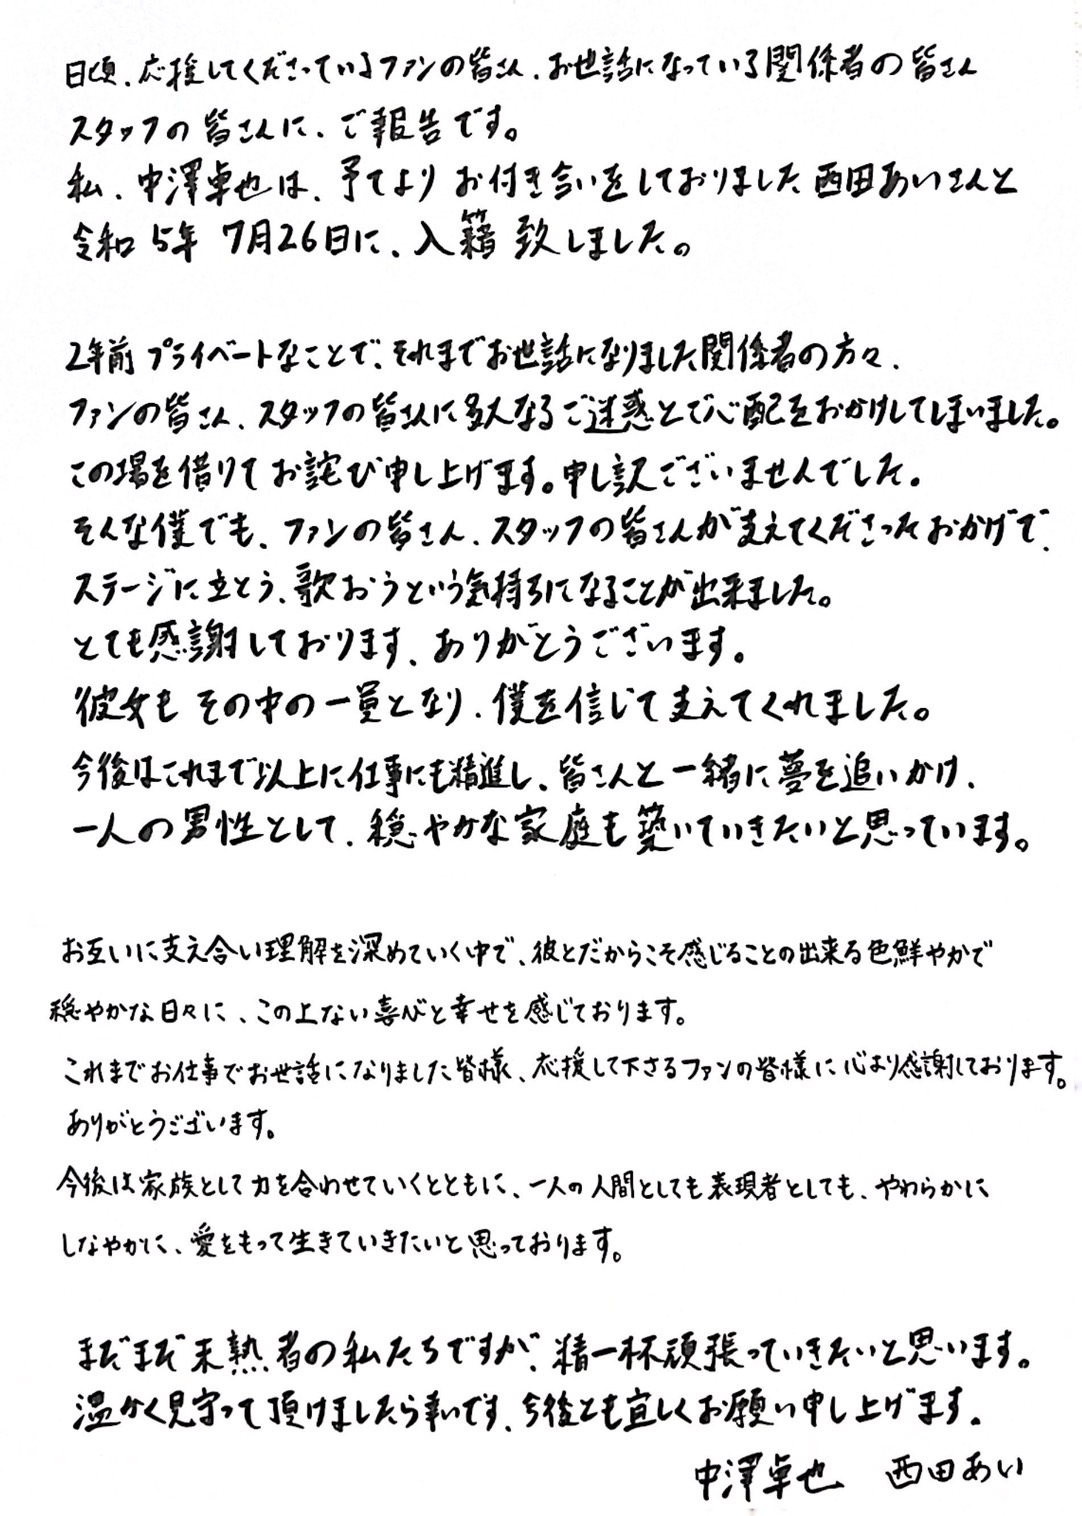 日頃、応援してくださっているファンの皆さん、お世話になっている関係者の皆さん
スタッフの皆さんに、ご報告です。
私、中澤卓也は、予てよりお付き合いをしておりました西田あいさんと
令和5年 7月26日に、入籍致しました。
2年前プライベートなことで、それまでお世話になりました関係者の方々、
ファンの皆さん、スタッフの皆さんに多大なるご迷惑とご心配をおかけしてしまいました。
この場を借りてお詫び申し上げます。申し訳ございませんでした。
そんな僕でも、ファンの皆さん、スタッフの皆さんが支えてくださったおかげで、
ステージに立とう、歌おうという気持ちになることが出来ました。
とても感謝しております、ありがとうございます。
彼女もその中の一員となり、僕を信じて支えてくれました。
今後はこれまで以上に仕事にも精進し、皆さんと一緒に夢を追いかけ、
一人の男性として、穏やかな家庭も築いていきたいと思っています。
お互いに支え合い理解を深めていく中で、彼とだからこそ感じることの出来る色鮮やかで
穏やかな日々に、この上ない喜びと幸せを感じております。
これまでお仕事でお世話になりました皆様、応援して下さるファンの皆様に心より感謝しております。
ありがとうございます。
今後は家族として力を合わせていくとともに、一人の人間としても表現者としても、やわらかに
しなやかに、愛をもって生きていきたいと思っております。
まだまだ未熟者の私たちですが、精一杯頑張っていきたいと思います。
温かく見守って頂けましたら幸いです、今後とも宜しくお願い申し上げます。
中澤卓也　西田あい